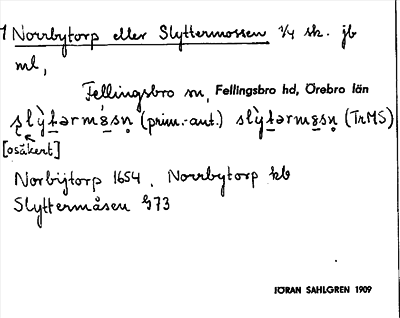 1 Norrbytorp eller Slyttermossen 3/4 sk. jb
ml,
Fellingsbro sn, Fellingsbro hd, Örebro län
slỳtərmɛ́sn̥ (prim.-ant.) slỳtərmɛsn̥ (TrMS)
[osäkert]
Norbijtorp 1654. Norrbytorp kb
Slyttermåsen G73
JÖRAN SAHLGREN 1909